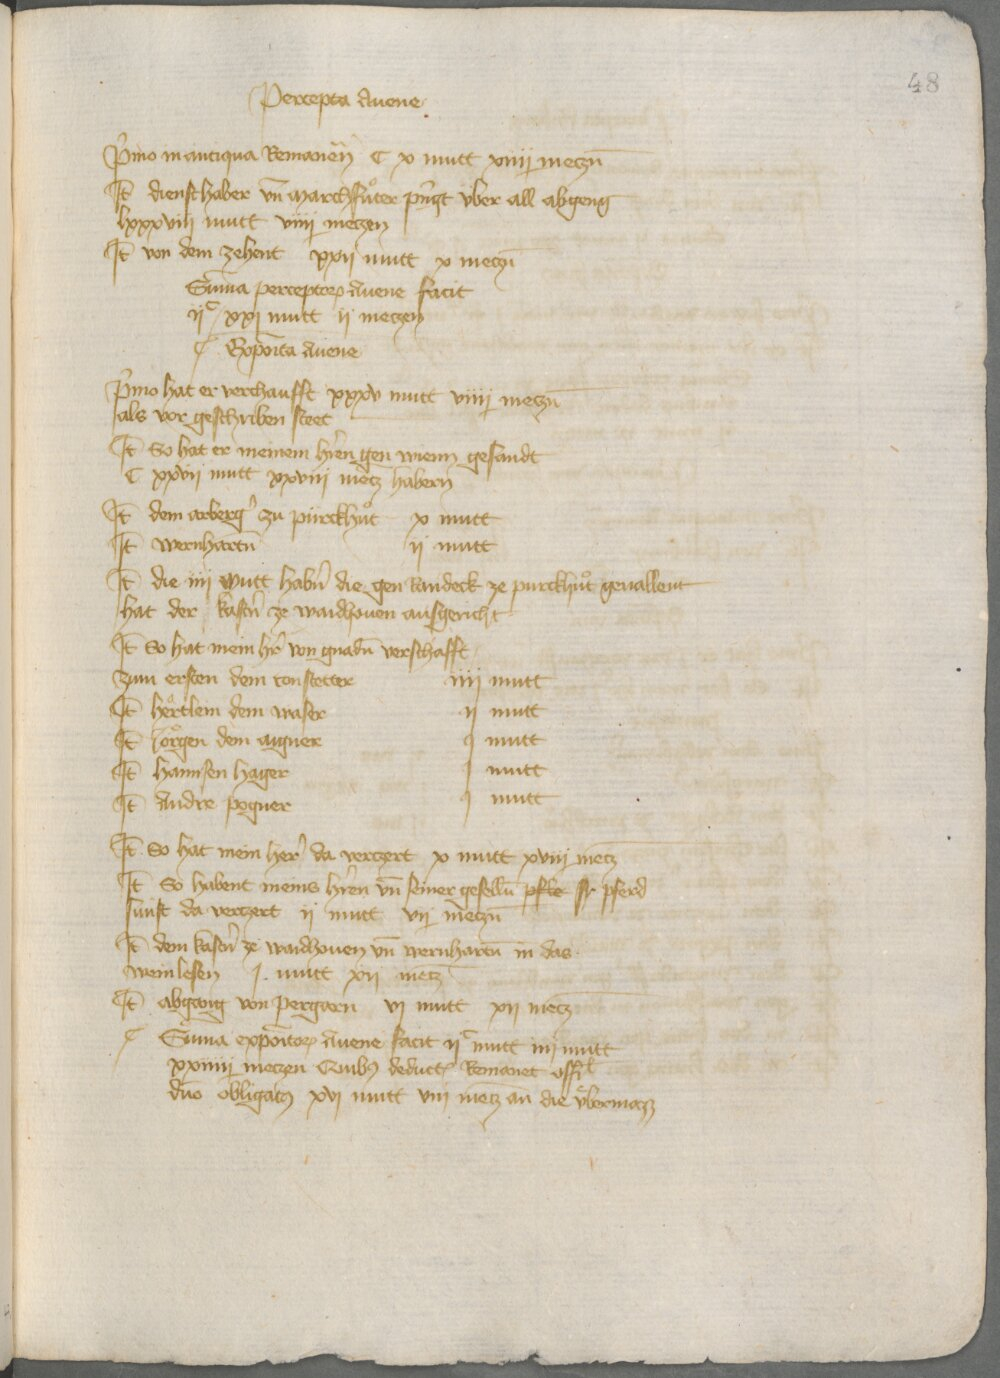 48
Percepta Auene
P̄mo in antiqua Remanen̄ C x mutt xiiij meczn̄
It̄ diensthaber vn̄ Marchfůter pringt vber all abgeng
lxxxviij mutt viiij meczen
It̄ von dem zehent xxij mutt x meczn̄
Sūma perceptorꝝ Auene facit
ijC xxi mutt ij meczen
Exposita Auene
P̄mo hat er verchaufft xxxv mutt viiij meczn̄
als vor geschriben steet
It̄ So hat er meinem hr̄en gen wienn gesandt
C xxvij mutt xxviij mecz habern
It̄ dem arberg̓ zu purckhůt x mutt
It̄ wernhartn̄ ij mutt
It̄ die iiij mutt habn̄ die gen Randeck ze purckhůt geuallent
hat der kastn̄ ze waidhouen ausgericht
It̄ So hat mein hr̄ von gnadn̄ verschafft
zum ersten dem tonstetter iiij mutt
It̄ hertlein dem waser ij mutt
It̄ Jorgen dem aigner j mutt
It̄ hannsen hager j mutt
It̄ Andre pogner j mutt
It̄ So hat mein her̓ da verczert x mutt xviij mecz
It̄ So habent meins hr̄en vn̄ seiner geselln̄ pfte pferd
sunst da verczert ij mutt vij meczn̄
It̄ dem kastn̄ ze waidhouen vn̄ wernhartn̄ in das
weinlesen j mutt xij mecz
It̄ abgang von pergarn vi mutt xij mecz
Sūma expositorꝝ Auene facit ijC mutt iiij mutt
xxiiij meczen Quibꝫ deduct̓ Remanet offil
dn̄o obligatꝫ xvj mutt viij mecz an die vbermazz